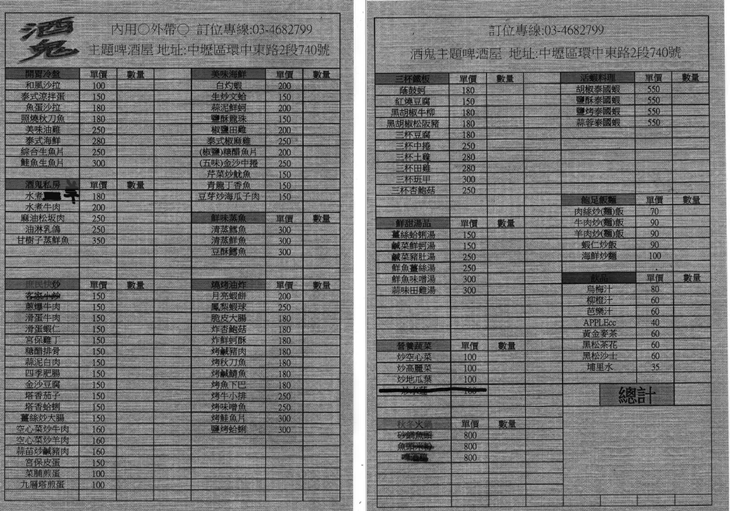 酒鬼
內用○外帶○ 訂位專線:03-4682799
主題啤酒屋 地址:中壢區環中東路2段740號
開胃冷盤 單價 數量
和風沙拉 100
泰式涼拌蛋 150
魚蛋沙拉 180
照燒秋刀魚 180
美味油雞 250
泰式海鮮 280
綜合生魚片 250
鮭魚生魚片 300
酒鬼私房 單價 數量
水煮 180
水煮牛肉 200
麻油松坂肉 250
油淋乳鴿 250
甘樹子蒸鮮魚 350
單價 數量
客家小炒 150
蔥爆牛肉 150
滑蛋牛肉 150
滑蛋蝦仁 150
宮保雞丁 150
糖醋排骨 150
蒜泥白肉 150
四季肥腸 150
金沙豆腐 150
塔香茄子 150
塔香蛤蜊 150
薑絲炒大腸 150
空心菜炒牛肉 160
空心菜炒羊肉 160
蒜苗炒鹹豬肉 160
宮保皮蛋 150
菜脯煎蛋 100
九層塔煎蛋 100
美味海鮮 單價 數量
白灼蝦 200
生炒文蛤 150
蒜泥鮮蚵 200
鹽酥龍珠 150
椒鹽田雞 200
泰式椒麻雞 250
(椒鹽)糖醋魚片 200
(五味)金沙中捲 250
芹菜炒魷魚 150
青龍丁香魚 150
豆芽炒海瓜子肉 150
鮮味蒸魚 單價 數量
清蒸鱈魚 300
清蒸鮮魚 300
豆酥鱈魚 300
燒烤油炸 單價 數量
月亮蝦餅 200
鳳梨蝦球 250
脆皮大腸 180
炸杏鮑菇 180
炸鮮蚵酥 180
烤鹹豬肉 180
烤秋刀魚 180
烤鹹鯖魚 180
烤魚下巴 180
烤牛小排 250
烤味噌魚 250
烤鮭魚片 300
鹽烤蛤蜊 300
訂位專線:03-4682799
酒鬼主題啤酒屋 地址:中壢區環中東路2段740號
三杯鐵板 單價 數量
蔭豉蚵 180
紅燒豆腐 150
黑胡椒牛柳 180
黑胡椒松阪豬 180
三杯豆腐 180
三杯中捲 250
三杯土雞 280
三杯田雞 280
三杯班甲 300
三杯杏鮑菇 250
鮮甜湯品 單價 數量
薑絲蛤蜊湯 150
鹹菜鮮蚵湯 150
鹹菜豬肚湯 250
鮮魚薑絲湯 250
鮮魚味噌湯 300
蒜味田雞湯 300
營養蔬菜 單價 數量
炒空心菜 100
炒高麗菜 100
炒地瓜葉 100
炒水蓮 100
秋冬火鍋 單價 數量
800
800
800
活蝦料理 單價 數量
胡椒泰國蝦 550
鹽酥泰國蝦 550
鹽烤泰國蝦 550
蒜蓉泰國蝦 550
飽足飯麵 單價 數量
肉絲炒(麵)飯 70
牛肉炒(麵)飯 90
羊肉炒(麵)飯 90
蝦仁炒飯 90
海鮮炒麵 100
飲品 單價 數量
烏梅汁 80
柳橙汁 60
芭樂汁 60
APPLEcc 40
黃金麥茶 60
黑松茶花 60
黑松沙士 60
埔里水 35
總計